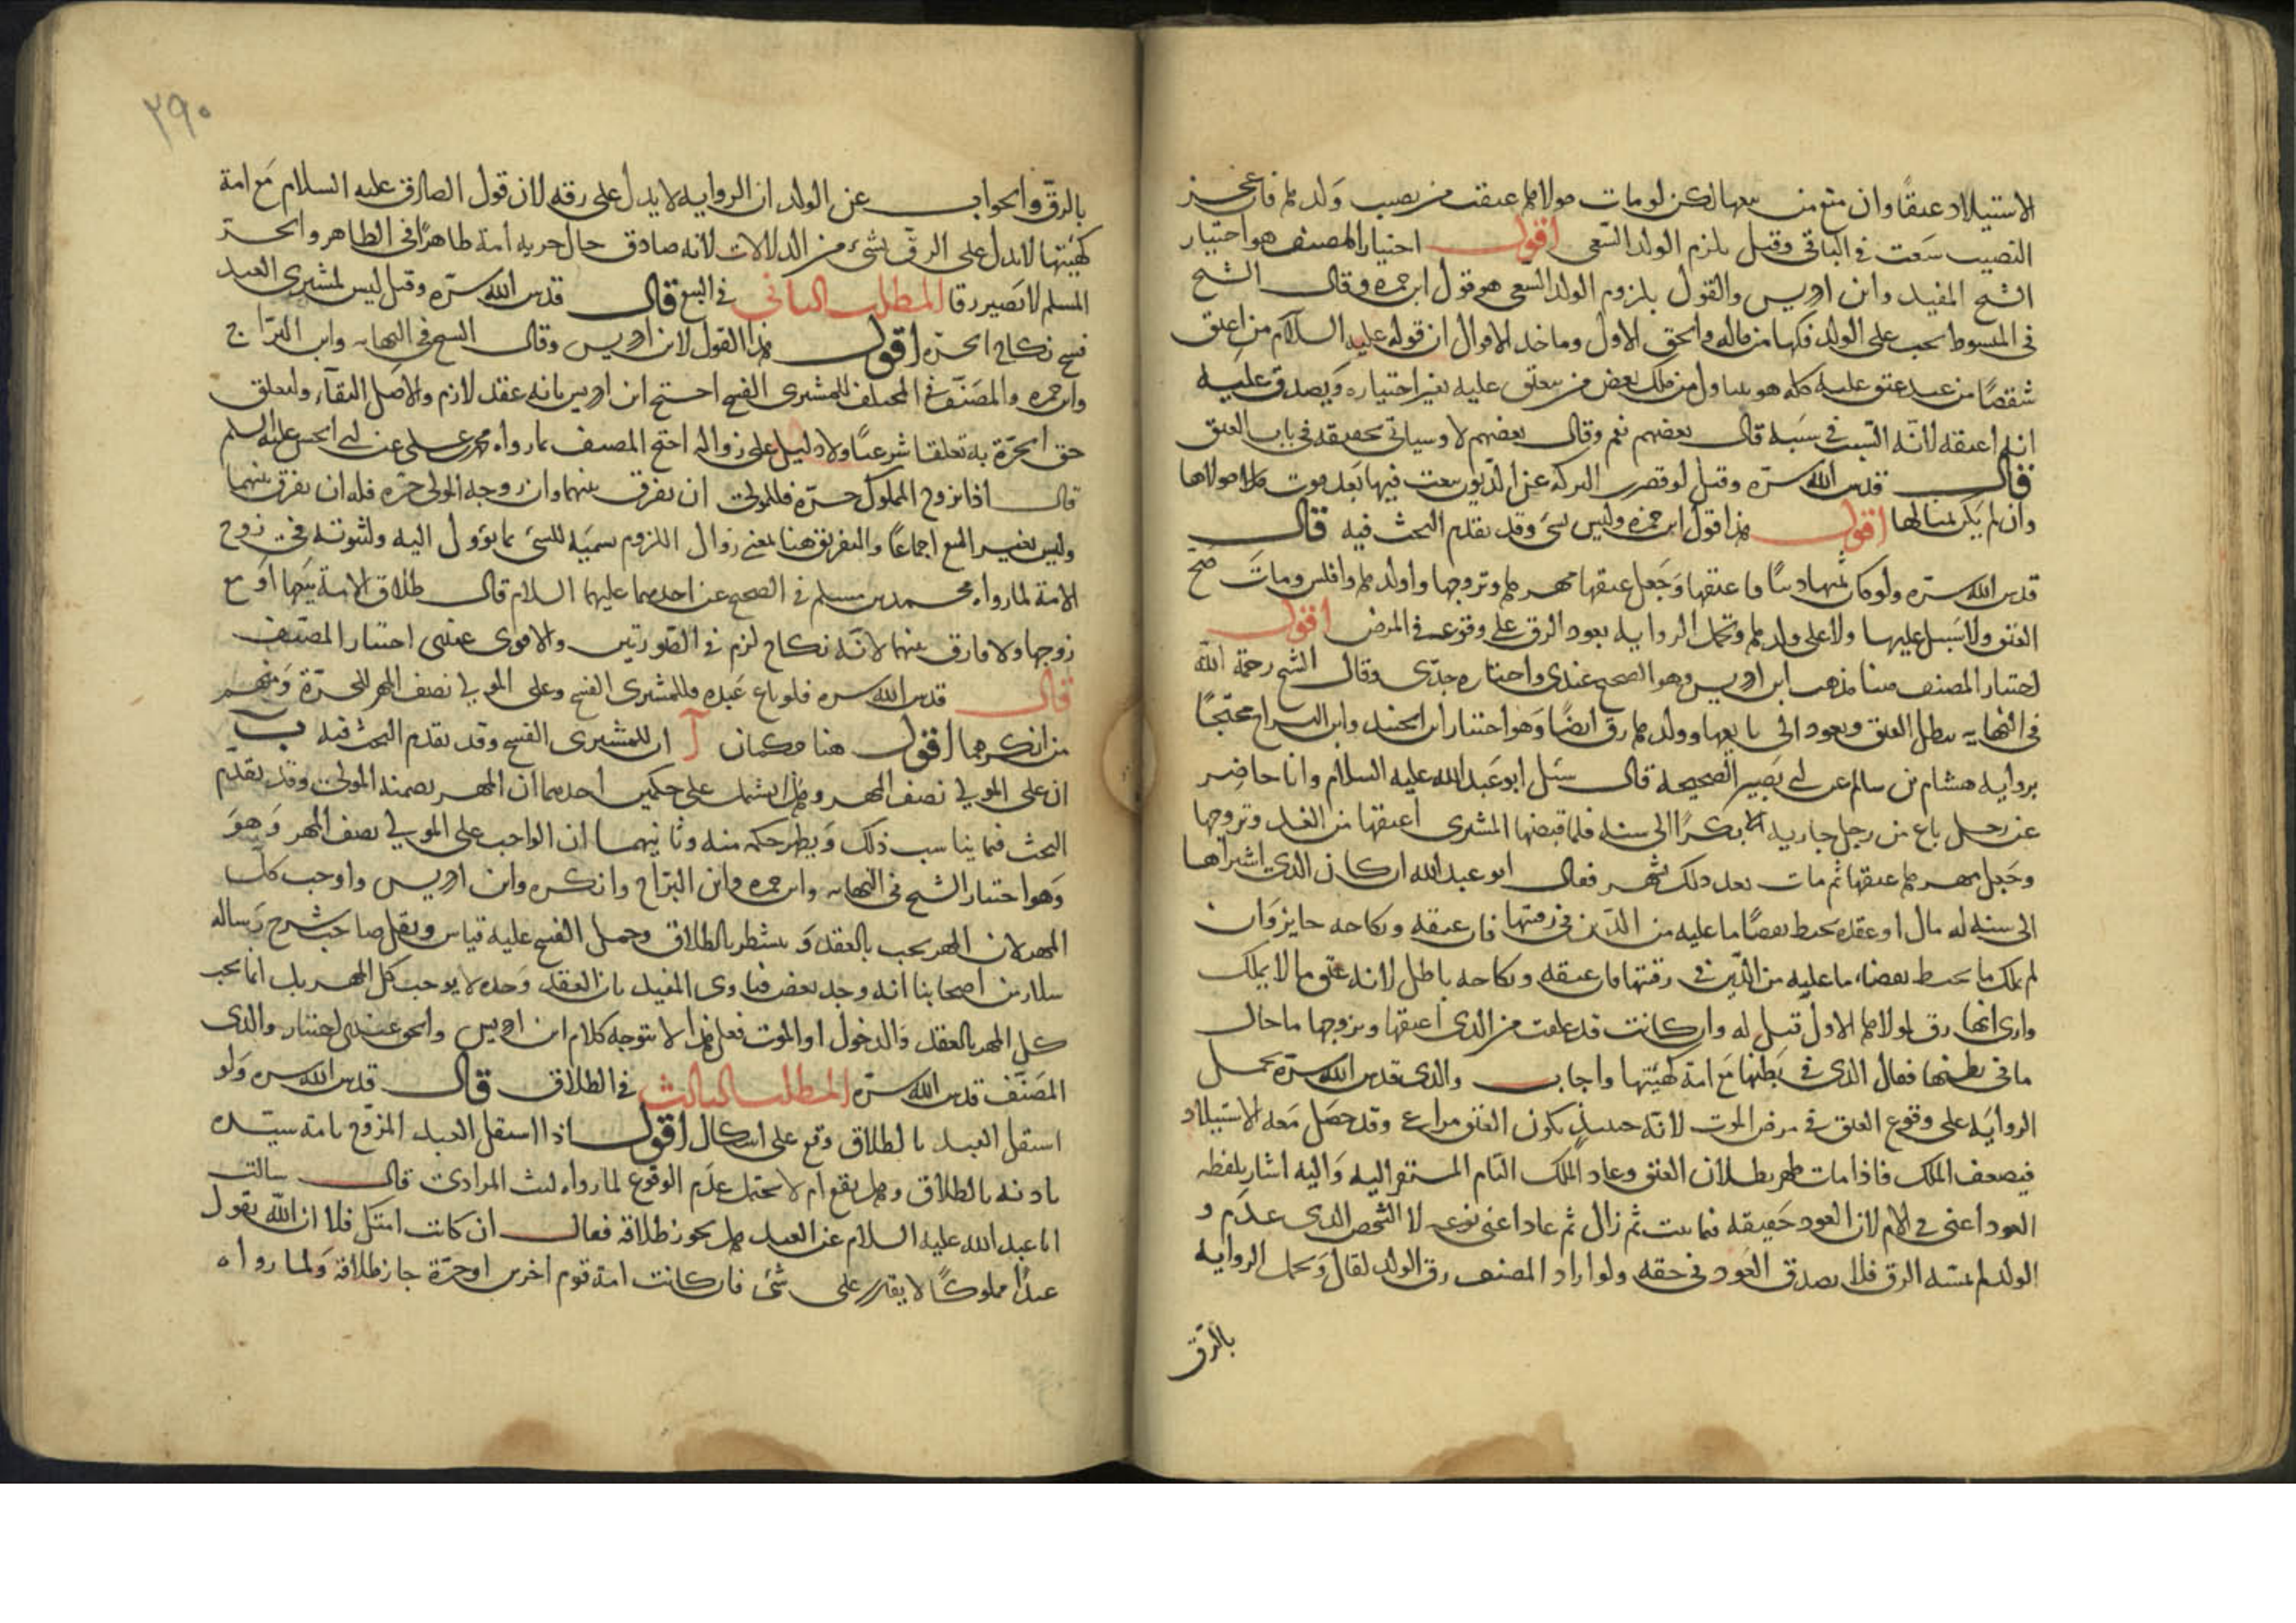 الاستيلاد عتقا وان منع من بيعها لكن لو مات مولاها عتقت من نصيب ولدها فان عجز
النصيب سعت في الباقي وقيل يلزم الولد السعي اقول اختيار المصنف هو اختيار
الشيخ المفيد وابن ادريس والقول بلزوم الولد السعي هو قول ابن حمزه وقال الشيخ
في المبسوط يجب على الولد فكها من ماله والحق الاول وماخذ الاقوال ان قوله عليه السلام من اعتق
شقصا من عبد عتق عليه كله هو يتناول من ملك بعض من ينعتق عليه بغير اختياره ويصدق عليه
انه اعتقه لانه السبب في سببه قال بعضهم نعم وقال بعضهم لا وسياتي تحقيقه في باب العتق
قال قدس الله سره وقيل لو قصرت التركه عن الديون بيعت فيها بعد موت مولاها
وان لم يكن ثمنا لها اقول هذا قول ابن حمزه وليس بشئ وقد تقدم البحث فيه قال
قدس الله سره ولو كان ثمنها دينا فاعتقها وجعل عتقها مهرها وتزوجها واولدها وافلس ومات صح
العتق ولا سبيل عليها ولا على ولدها وتحمل الروايه بعود الرق على وقوعه في المرض اقول
اختيار المصنف هنا مذهب ابن ادريس وهو الصحيح عندي واختاره جدي وقال الشيخ رحمة الله
في النهايه يبطل العتق ويعود الى بايعها وولدها رق ايضا وهو اختيار ابن الجنيد وابن البراج محتجا
بروايه هشام بن سالم عن ابي بصير الصحيحه قال سئل ابو عبد الله عليه السلام وانا حاضر
عن رجل باع من رجل جاريه بكرا الى سنه فلما قبضها المشتري اعتقها من الغد وتزوجها
وجعل مهرها عتقها ثم مات بعد ذلك بشهر فقال ابو عبد الله ان كان الذي اشتراها
الى سنه له مال او عقده تحيط بقضا ما عليه من الدين في رقبتها فان عتقه ونكاحه جايز وان
لم يملك ما يحيط بقضاء ما عليه من الدين في رقبتها فان عتقه ونكاحه باطل لانه عتق ما لا يملك
وارى انها رق لمولاها الاول قيل له وان كانت قد علقت من الذي اعتقها وتزوجها ما حال
ما في بطنها فقال الذي في بطنها مع امه كهيئتها واجاب والدي قدس الله سره بحمل
الروايه على وقوع العتق في مرض الموت لانه حينئذ يكون العتق مراعى وقد حصل معه الاستيلاد
فيضعف الملك فاذا مات ظهر بطلان العتق وعاد الملك التام المستقر اليه واليه اشار بلفظه
العود اعني في الام لان العود حقيقه فيما ثبت ثم زال ثم عاد اعني نوعه لا الشخص الذي عدم و
الولد لم يمسه الرق فلا يصدق العود في حقه ولو اراد المصنف رق الولد لقال وتحمل الروايه
بالرق
٢٩٠
بالرق والجواب عن الولد ان الروايه لا يدل على رقه لان قول الصادق عليه السلام مع امه
كهيئتها لا يدل على الرق بشئ من الدلالات لانه صادق حال حريه امه ظاهرا في الظاهر والحر
المسلم لا يصير رقا المطلب الثاني في البيع قال قدس الله سره وقيل ليس لمشتري العبد
فسخ نكاح الحره اقول هذا القول لابن ادريس وقال الشيخ في النهايه وابن البراج
وابن حمزه والمصنف في المختلف للمشتري الفسخ احتج ابن ادريس بانه عقد لازم والاصل البقاء ولتعلق
حق الحرة به تعلقا شرعيا ولا دليل على زواله احتج المصنف بما رواه محمد بن علي عن ابي الحسن عليه السلم
قال اذا تزوج المملوك حرة فللمولى ان يفرق بينهما وان زوجه المولى حره فله ان يفرق بينهما
وليس بغير البيع اجماعا والتفريق هنا بمعنى زوال اللزوم تسميه للشئ بما يؤول اليه ولثبوته في زوج
الامة لما رواه محمد بن مسلم في الصحيح عن احدهما عليهما السلام قال طلاق الامة بيعها او بيع
زوجها ولا فارق بينهما لانه نكاح لزم في الصورتين والاقوى عندي اختيار المصنف
قال قدس الله سره فلو باع عبده فللمشتري الفسخ وعلى المولى نصف المهر للحرة ومنهم
من انكرهما اقول هنا حكمان آ ان للمشتري الفسخ وقد تقدم البحث فيه ب
ان على المولى نصف المهر وهذا يشتمل على حكمين احدهما ان المهر يضمنه المولى وقد تقدم
البحث فيما يناسب ذلك ويظهر حكمه منه وثانيهما ان الواجب على المولى نصف المهر وهو
وهو اختيار الشيخ في النهايه وابن حمزه وابن البراج وانكره وابن ادريس واوجب كل
المهر لان المهر يجب بالعقد وينشطر بالطلاق وحمل الفسخ عليه قياس ونقل صاحب شرح رساله
سلار من اصحابنا انه وجد بعض فتاوى المفيد بان العقد وحده لا يوجب كل المهر بل انما يجب
كل المهر بالعقد والدخول او الموت فعلى هذا لا يتوجه كلام ابن ادريس والحق عندي اختيار والدي
المصنف قدس الله سره المطلب الثالث في الطلاق قال قدس الله سره ولو
استقل العبد بالطلاق وقع على اشكال اقول اذا استقل العبد المزوج بامة سيده
باذنه بالطلاق وهل يقع ام لا يحتمل عدم الوقوع لما رواه ليث المرادي قال سالت
ابا عبد الله عليه السلام عن العبد هل يجوز طلاقه فقال ان كانت امتك فلا ان الله يقول
عبدا مملوكا لا يقدر على شئ فان كانت امة قوم اخرين او حرة جاز طلاقه ولما رواه